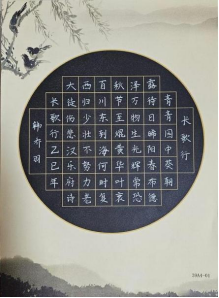 长歌行
青青园中葵朝
露待日晞阳春布德
泽万物生光辉常恐
秋节至焜黄华叶衰
百川东到海何时复
西归少壮不努力老
大徒伤悲汉乐府诗
长歌行乙巳年
韩 羽